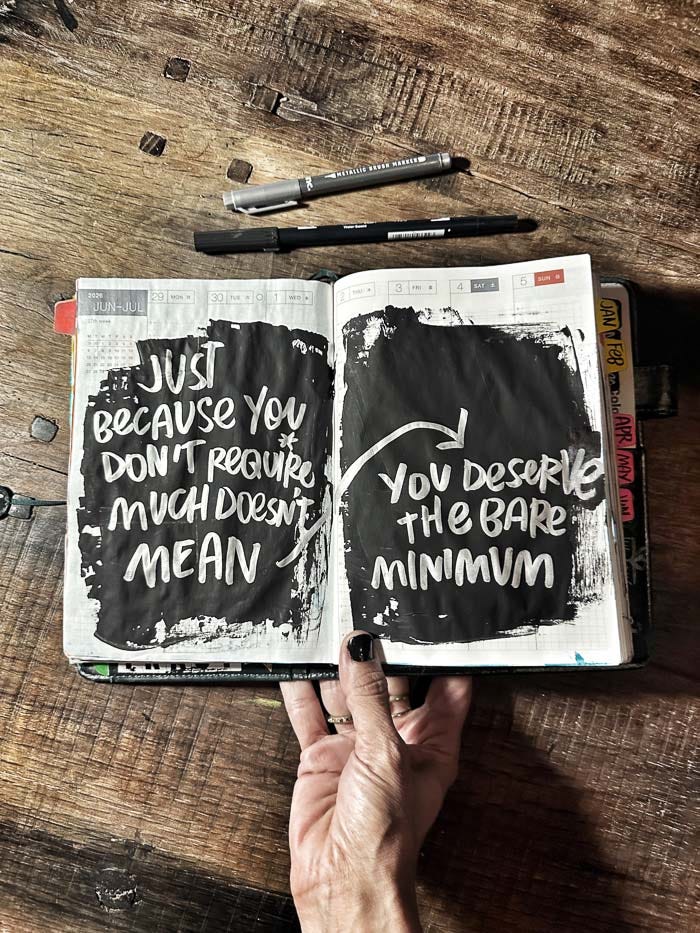 METALLIC BRUSH MARKER
2026
JUN–JUL
29 MON
30 TUE
1 WED
2 THU
3 FRI
4 SAT
5 SUN
27th week
JUST
BECAUSE YOU
DON'T REQUIRE
MUCH DOESN'T
MEAN
YOU DESERVE
THE BARE
MINIMUM
JAN
FEB
APR
MAY
JUN